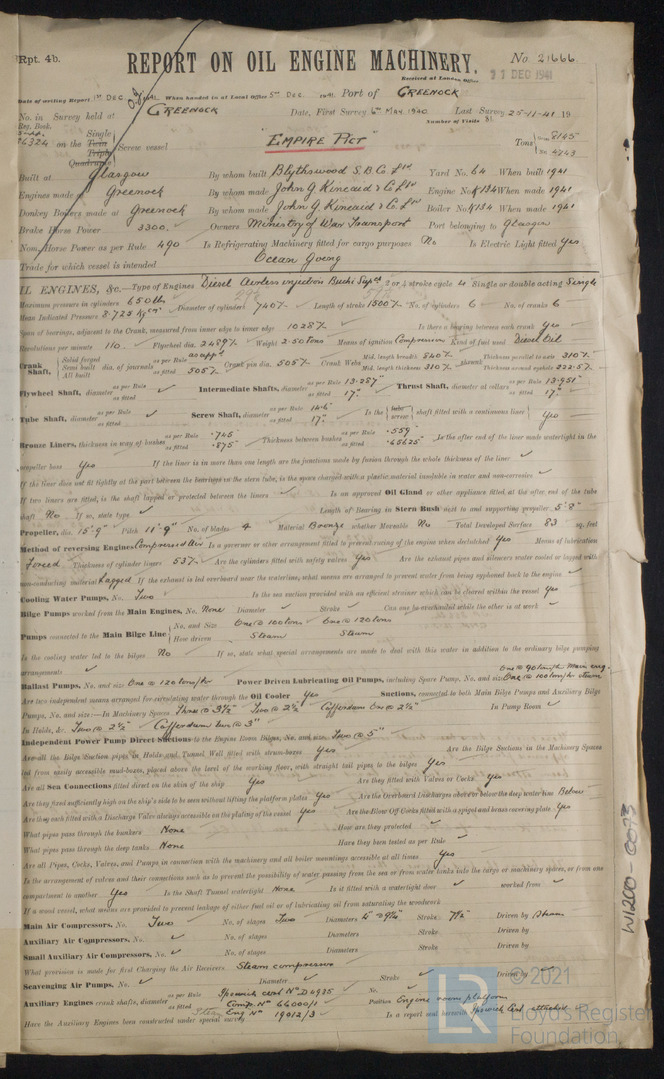 Rpt. 4b.
REPORT ON OIL ENGINE MACHINERY.
No. 21666
Received at London Office 11 DEC 1941
Date of writing Report 1st DEC 1941 When handed in at Local Office 5th DEC. 1941 Port of GREENOCK
No. in Reg. Book. Survey held at GREENOCK Date, First Survey 6th May 1940 Last Survey 25-11-41 19
Number of Visits
Single
on the Twin Triple Quadruple Screw vessel "EMPIRE PICT" Tons Gross 8145 Net 4743
Built at Glasgow By whom built Blythswood S.B. Co. Ltd Yard No. 64 When built 1941
Engines made at Greenock By whom made John G. Kincaid & Co. Ltd Engine No. K134 When made 1941
Donkey Boilers made at Greenock By whom made John G. Kincaid & Co. Ltd Boiler No. K134 When made 1941
Brake Horse Power 3300. Owners Ministry of War Transport Port belonging to Glasgow
Nom. Horse Power as per Rule 490 Is Refrigerating Machinery fitted for cargo purposes No Is Electric Light fitted Yes
Trade for which vessel is intended Ocean Going
OIL ENGINES, &c.—Type of Engines Diesel Airless injection Buchi Supd. 2 or 4 stroke cycle 4 Single or double acting Single
Maximum pressure in cylinders 650 lbs Diameter of cylinders 740 Length of stroke 1500 No. of cylinders 6 No. of cranks 6
Mean Indicated Pressure 8.725
Span of bearings, adjacent to the Crank, measured from inner edge to inner edge 1028 Is there a bearing between each crank Yes
Revolutions per minute 110 Flywheel dia. 2489 Weight 2.50 tons Means of ignition Compression Kind of fuel used Diesel Oil
Crank Shaft, Solid forged Semi built All built dia. of journals as per Rule as app'd as fitted 505 Crank pin dia. 505 Crank Webs Mid. length breadth 840 Mid. length thickness 310 Thickness parallel to axis 310 Thickness around eyehole 222.5
Flywheel Shaft, diameter as per Rule as fitted Intermediate Shafts, diameter as per Rule 13.287" as fitted 17" Thrust Shaft, diameter at collars as per Rule 13.951" as fitted 17"
Tube Shaft, diameter as per Rule as fitted Screw Shaft, diameter as per Rule 14.6" as fitted 17" Is the tube screw shaft fitted with a continuous liner Yes
Bronze Liners, thickness in way of bushes as per Rule .745" as fitted .875" Thickness between bushes as per Rule .559 as fitted .65625" Is the after end of the liner made watertight in the
propeller boss Yes If the liner is in more than one length are the junctions made by fusion through the whole thickness of the liner
If the liner does not fit tightly at the part between the bearings in the stern tube, is the space charged with a plastic material insoluble in water and non-corrosive
If two liners are fitted, is the shaft lapped or protected between the liners Is an approved Oil Gland or other appliance fitted at the after end of the tube
shaft No If so, state type Length of Bearing in Stern Bush next to and supporting propeller 5'8"
Propeller, dia. 15'-9" Pitch 11'-9" No. of blades 4 Material Bronze whether Moveable No Total Developed Surface 83 sq. feet
Method of reversing Engines Compressed Air Is a governor or other arrangement fitted to prevent racing of the engine when declutched Yes Means of lubrication
Forced Thickness of cylinder liners 53 Are the cylinders fitted with safety valves Yes Are the exhaust pipes and silencers water cooled or lagged with
non-conducting material Lagged If the exhaust is led overboard near the waterline, what means are arranged to prevent water from being syphoned back to the engine
Cooling Water Pumps, No. Two Is the sea suction provided with an efficient strainer which can be cleared within the vessel Yes
Bilge Pumps worked from the Main Engines, No. None Diameter Stroke Can one be overhauled while the other is at work
Pumps connected to the Main Bilge Line No. and Size One @ 100 tons One @ 120 tons
How driven Steam Steam
Is the cooling water led to the bilges No If so, state what special arrangements are made to deal with this water in addition to the ordinary bilge pumping
arrangements
Ballast Pumps, No. and size One @ 120 tons/hr Power Driven Lubricating Oil Pumps, including Spare Pump, No. and size One @ 90 tons/hr Main eng. One @ 100 tons/hr steam
Are two independent means arranged for circulating water through the Oil Cooler Yes Suctions, connected to both Main Bilge Pumps and Auxiliary Bilge
Pumps, No. and size:—In Machinery Spaces Three @ 3½" Two @ 2½" Cofferdam One @ 2½" In Pump Room
In Holds, &c. Two @ 2½" Cofferdam two @ 3"
Independent Power Pump Direct Suctions to the Engine Room Bilges, No. and size Two @ 5"
Are all the Bilge Suction pipes in Holds and Tunnel Well fitted with strum-boxes Yes Are the Bilge Suctions in the Machinery Spaces
led from easily accessible mud-boxes, placed above the level of the working floor, with straight tail pipes to the bilges Yes
Are all Sea Connections fitted direct on the skin of the ship Yes Are they fitted with Valves or Cocks Yes
Are they fixed sufficiently high on the ship's side to be seen without lifting the platform plates Yes Are the Overboard Discharges above or below the deep water line Below
Are they each fitted with a Discharge Valve always accessible on the plating of the vessel Yes Are the Blow Off Cocks fitted with a spigot and brass covering plate Yes
What pipes pass through the bunkers None How are they protected
What pipes pass through the deep tanks None Have they been tested as per Rule
Are all Pipes, Cocks, Valves, and Pumps in connection with the machinery and all boiler mountings accessible at all times Yes
Is the arrangement of valves and their connections such as to prevent the possibility of water passing from the sea or from water tanks into the cargo or machinery spaces, or from one
compartment to another Yes Is the Shaft Tunnel watertight None Is it fitted with a watertight door worked from
If a wood vessel, what means are provided to prevent leakage of either fuel oil or of lubricating oil from saturating the woodwork
Main Air Compressors, No. Two No. of stages Two Diameters 4" - 9¼" Stroke 7½" Driven by Steam
Auxiliary Air Compressors, No. No. of stages Diameters Stroke Driven by
Small Auxiliary Air Compressors, No. No. of stages Diameters Stroke Driven by
What provision is made for first Charging the Air Receivers Steam compressor
Scavenging Air Pumps, No. Diameter Stroke Driven by
Auxiliary Engines crank shafts, diameter as per Rule as fitted Ipswich cert No. D4935 Comp. No. 66000/1 No. Position Engine room platform
Steam Eng No. 19012/3
Have the Auxiliary Engines been constructed under special survey Is a report sent herewith Ipswich Cert attached
W1200-0093
LR
© 2021
Lloyd's Register
Foundation